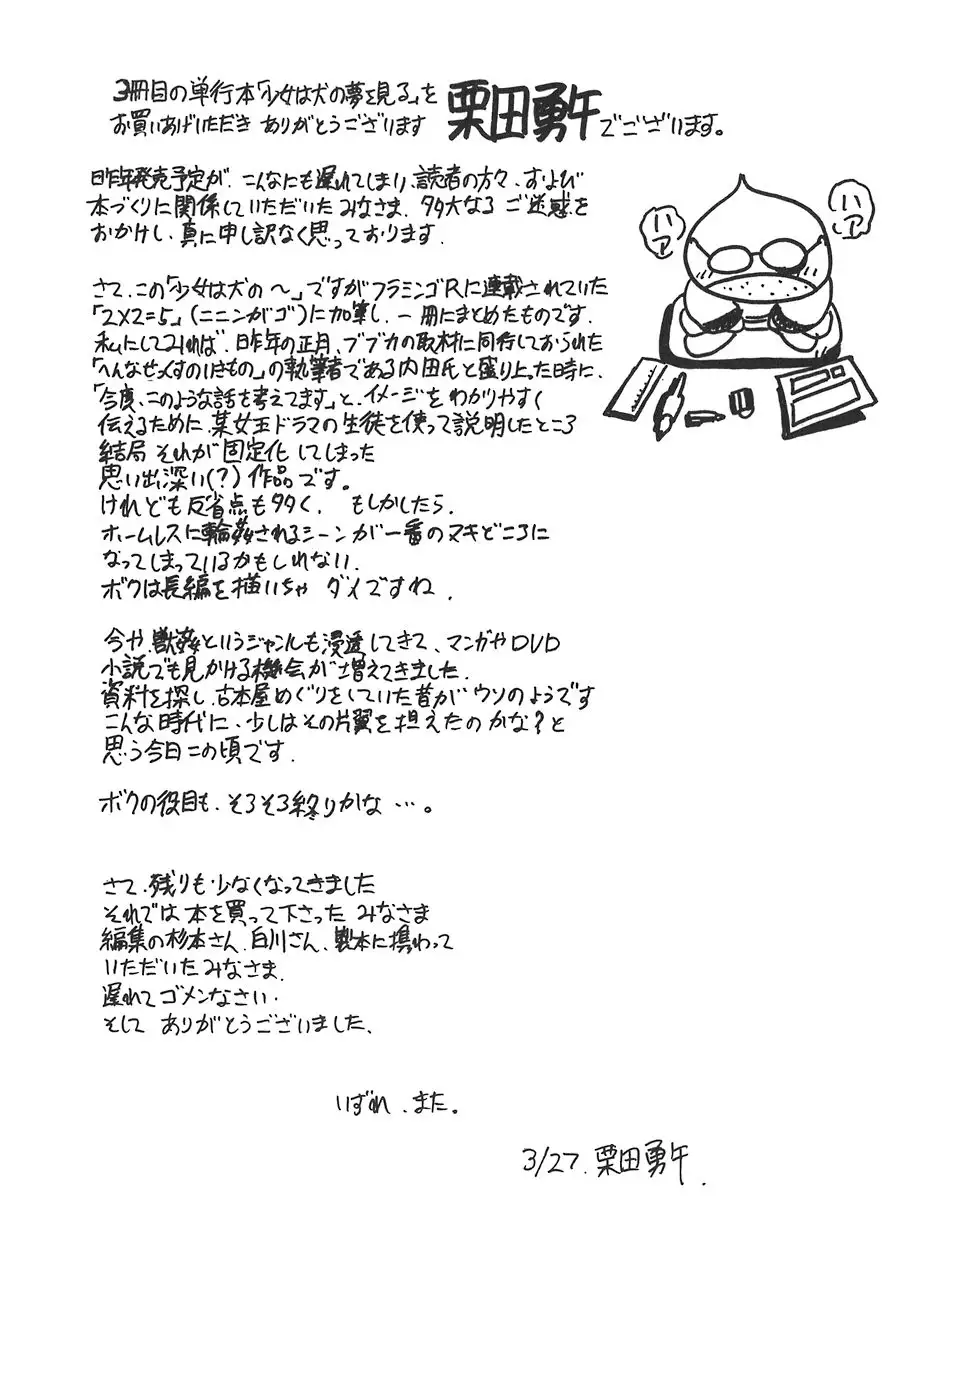 3冊目の単行本「少女は犬の夢を見る」を
お買いあげいただき ありがとうございます
栗田勇午でございます。
ハァ
ハァ
昨年発売予定が、こんなにも遅れてしまい、読者の方々、および
本づくりに関係していただいたみなさま、多大なるご迷惑を
おかけし、真に申し訳なく思っております.
さて、この「少女は犬の〜」ですがフラミンゴRに連載されていた
「2×2=5」(ニニンがゴ)に加筆し、一冊にまとめたものです.
私にしてみれば、昨年の正月、ブブカの取材に同行しておられた
「へんなせっくすのいきもの」の執筆者である内田氏と盛り上った時に、
「今度、このような話を考えてます」と、イメージをわかりやすく
伝えるために、某女王ドラマの生徒を使って説明したところ
結局それが固定化してしまった
思い出深い(?)作品です。
けれども反省点も多く、もしかしたら、
ホームレスに輪姦されるシーンが一番のヌキどころに
なってしまっているかもしれない.
ボクは長編を描いちゃダメですね.
今や、獣姦というジャンルも浸透してきて、マンガやDVD
小説でも見かける機会が増えてきました.
資料を探し、古本屋めぐりをしていた昔がウソのようです
こんな時代に、少しはその片翼を担えたのかな?と
思う今日この頃です.
ボクの役目も、そろそろ終りかな…。
さて、残りも少なくなってきました
それでは本を買って下さったみなさま
編集の杉本さん、白川さん、製本に携わって
いただいたみなさま.
遅れてゴメンなさい.
そして ありがとうございました、
いずれ、また。
3/27. 栗田勇午.